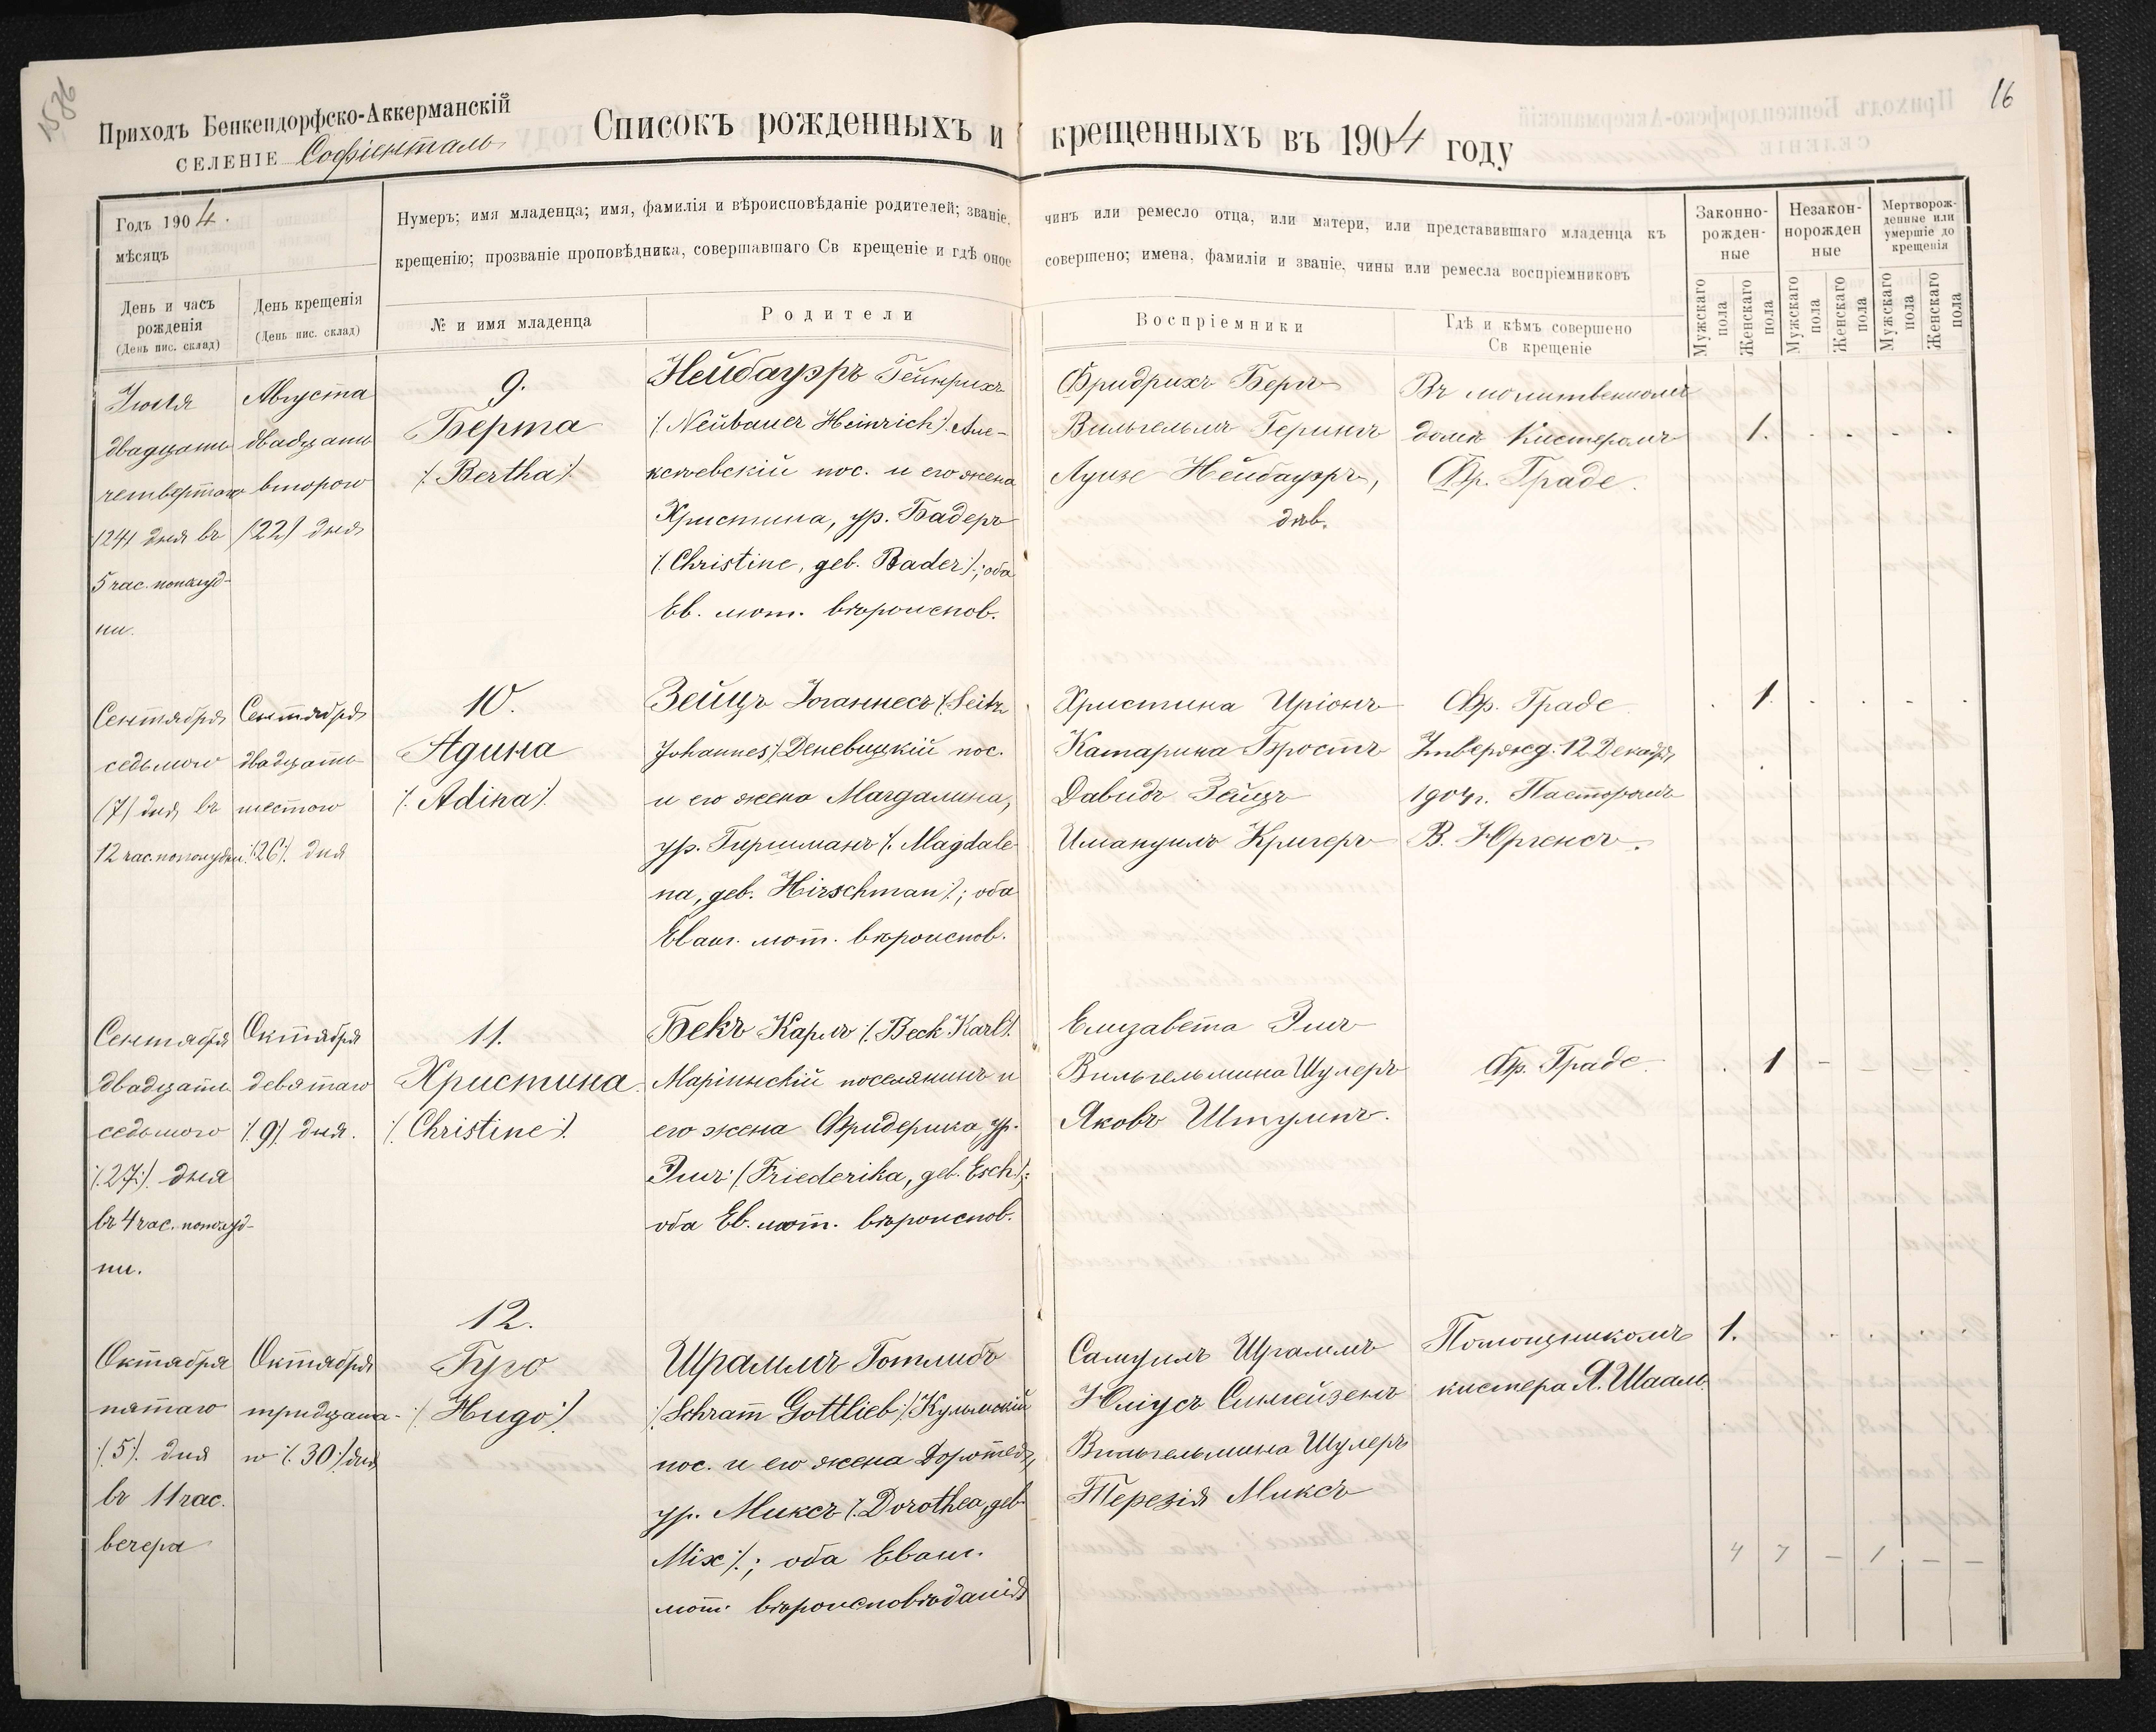 1536
16
Приходъ Бенкендорфско-Аккерманскій
СЕЛЕНІЕ Софіенталь
Списокъ рожденныхъ и крещенныхъ въ 1904 году
Годъ 1904.
мѣсяцъ
День и часъ
рожденія
(День пис. склад)
День крещенія
(День пис. склад)
Нумеръ; имя младенца; имя, фамилія и вѣроисповѣданіе родителей; званіе,
крещенію; прозваніе проповѣдника, совершавшаго Св крещеніе и гдѣ оное
№ и имя младенца
Родители
чинъ или ремесло отца, или матери, или представившаго младенца къ
совершено; имена, фамиліи и званіе, чины или ремесла воспріемниковъ
Воспріемники
Гдѣ и кѣмъ совершено
Св крещеніе
Законно-
рожден-
ные
Незакон-
норожден
ные
Мертворож-
денные или
умершіе до
крещенія
Мужскаго
пола
Женскаго
пола
Мужскаго
пола
Женскаго
пола
Мужскаго
пола
Женскаго
пола
Іюля
двадцать
четвертаго
/24/ дня въ
5 час. пополуд-
ни.
Августа
двадцать
второго
/22/ дня
9.
Берта
/. Bertha /.
Нейбауэръ Гейнрихъ
/ Neubauer Heinrich /. Але-
ксѣевскій пос. и его жена
Христина, ур. Бадеръ
/. Christine, geb. Bader /.; оба
Ев. лют. вѣроиспов.
Фридрихъ Бергъ
Вильгельмъ Герингъ
Луизе Нейбауэръ,
дѣв.
Въ молитвенномъ
домѣ Кистеромъ
Фр. Граде.
1.
Сентября
седьмого
/7/ дня въ
12 час. пополудни
Сентября
двадцать
шестого
/.26/. дня
10.
Адина
/. Adina /.
Зейцъ Іоганнесъ /. Seitz
Johannes /. Деневицкій пос.
и его жена Магдалина,
ур. Гиршманъ /. Magdale-
na, geb. Hirschman /.; оба
Еванг. лют. вѣроиспов.
Христина Иріонъ
Катарина Бростъ
Давидъ Зейцъ
Имануилъ Кригеръ
Фр. Граде
Утвержд. 12 Декабря
1904 г. Пасторомъ
В. Юргенсъ.
1.
Сентября
двадцать
седьмого
/.27/. дня
въ 4 час. пополуд-
ни.
Октября
девятаго
/. 9/. дня.
11.
Христина
/. Christine /.
Бекъ Карлъ /. Beck Karl /.
Маріинскій поселянинъ и
его жена Фридерика, ур.
Эшъ /. Friederika, geb. Esch /.;
оба Ев. лют. вѣроиспов.
Елизавета Эшъ
Вильгельмина Шулеръ
Яковъ Штумпъ.
Фр. Граде.
1
Октября
пятаго
/. 5/. дня
въ 11 час.
вечера
Октября
тридцата-
го /. 30 /. дня
12.
Гуго
/. Hugo /.
Шраммъ Готлибъ
/. Schram̅ Gottlieb /. Кульмскій
пос. и его жена Доротея,
ур. Миксъ /. Dorothea, geb.
Mix /.; оба Еванг.
лют. вѣроисповѣданія
Самуилъ Шраммъ
Юліусъ
Вильгельмина Шулеръ
Терезія Миксъ
Помощникомъ
кистера Я. Шааль.
1.
4 7 – 1 – –